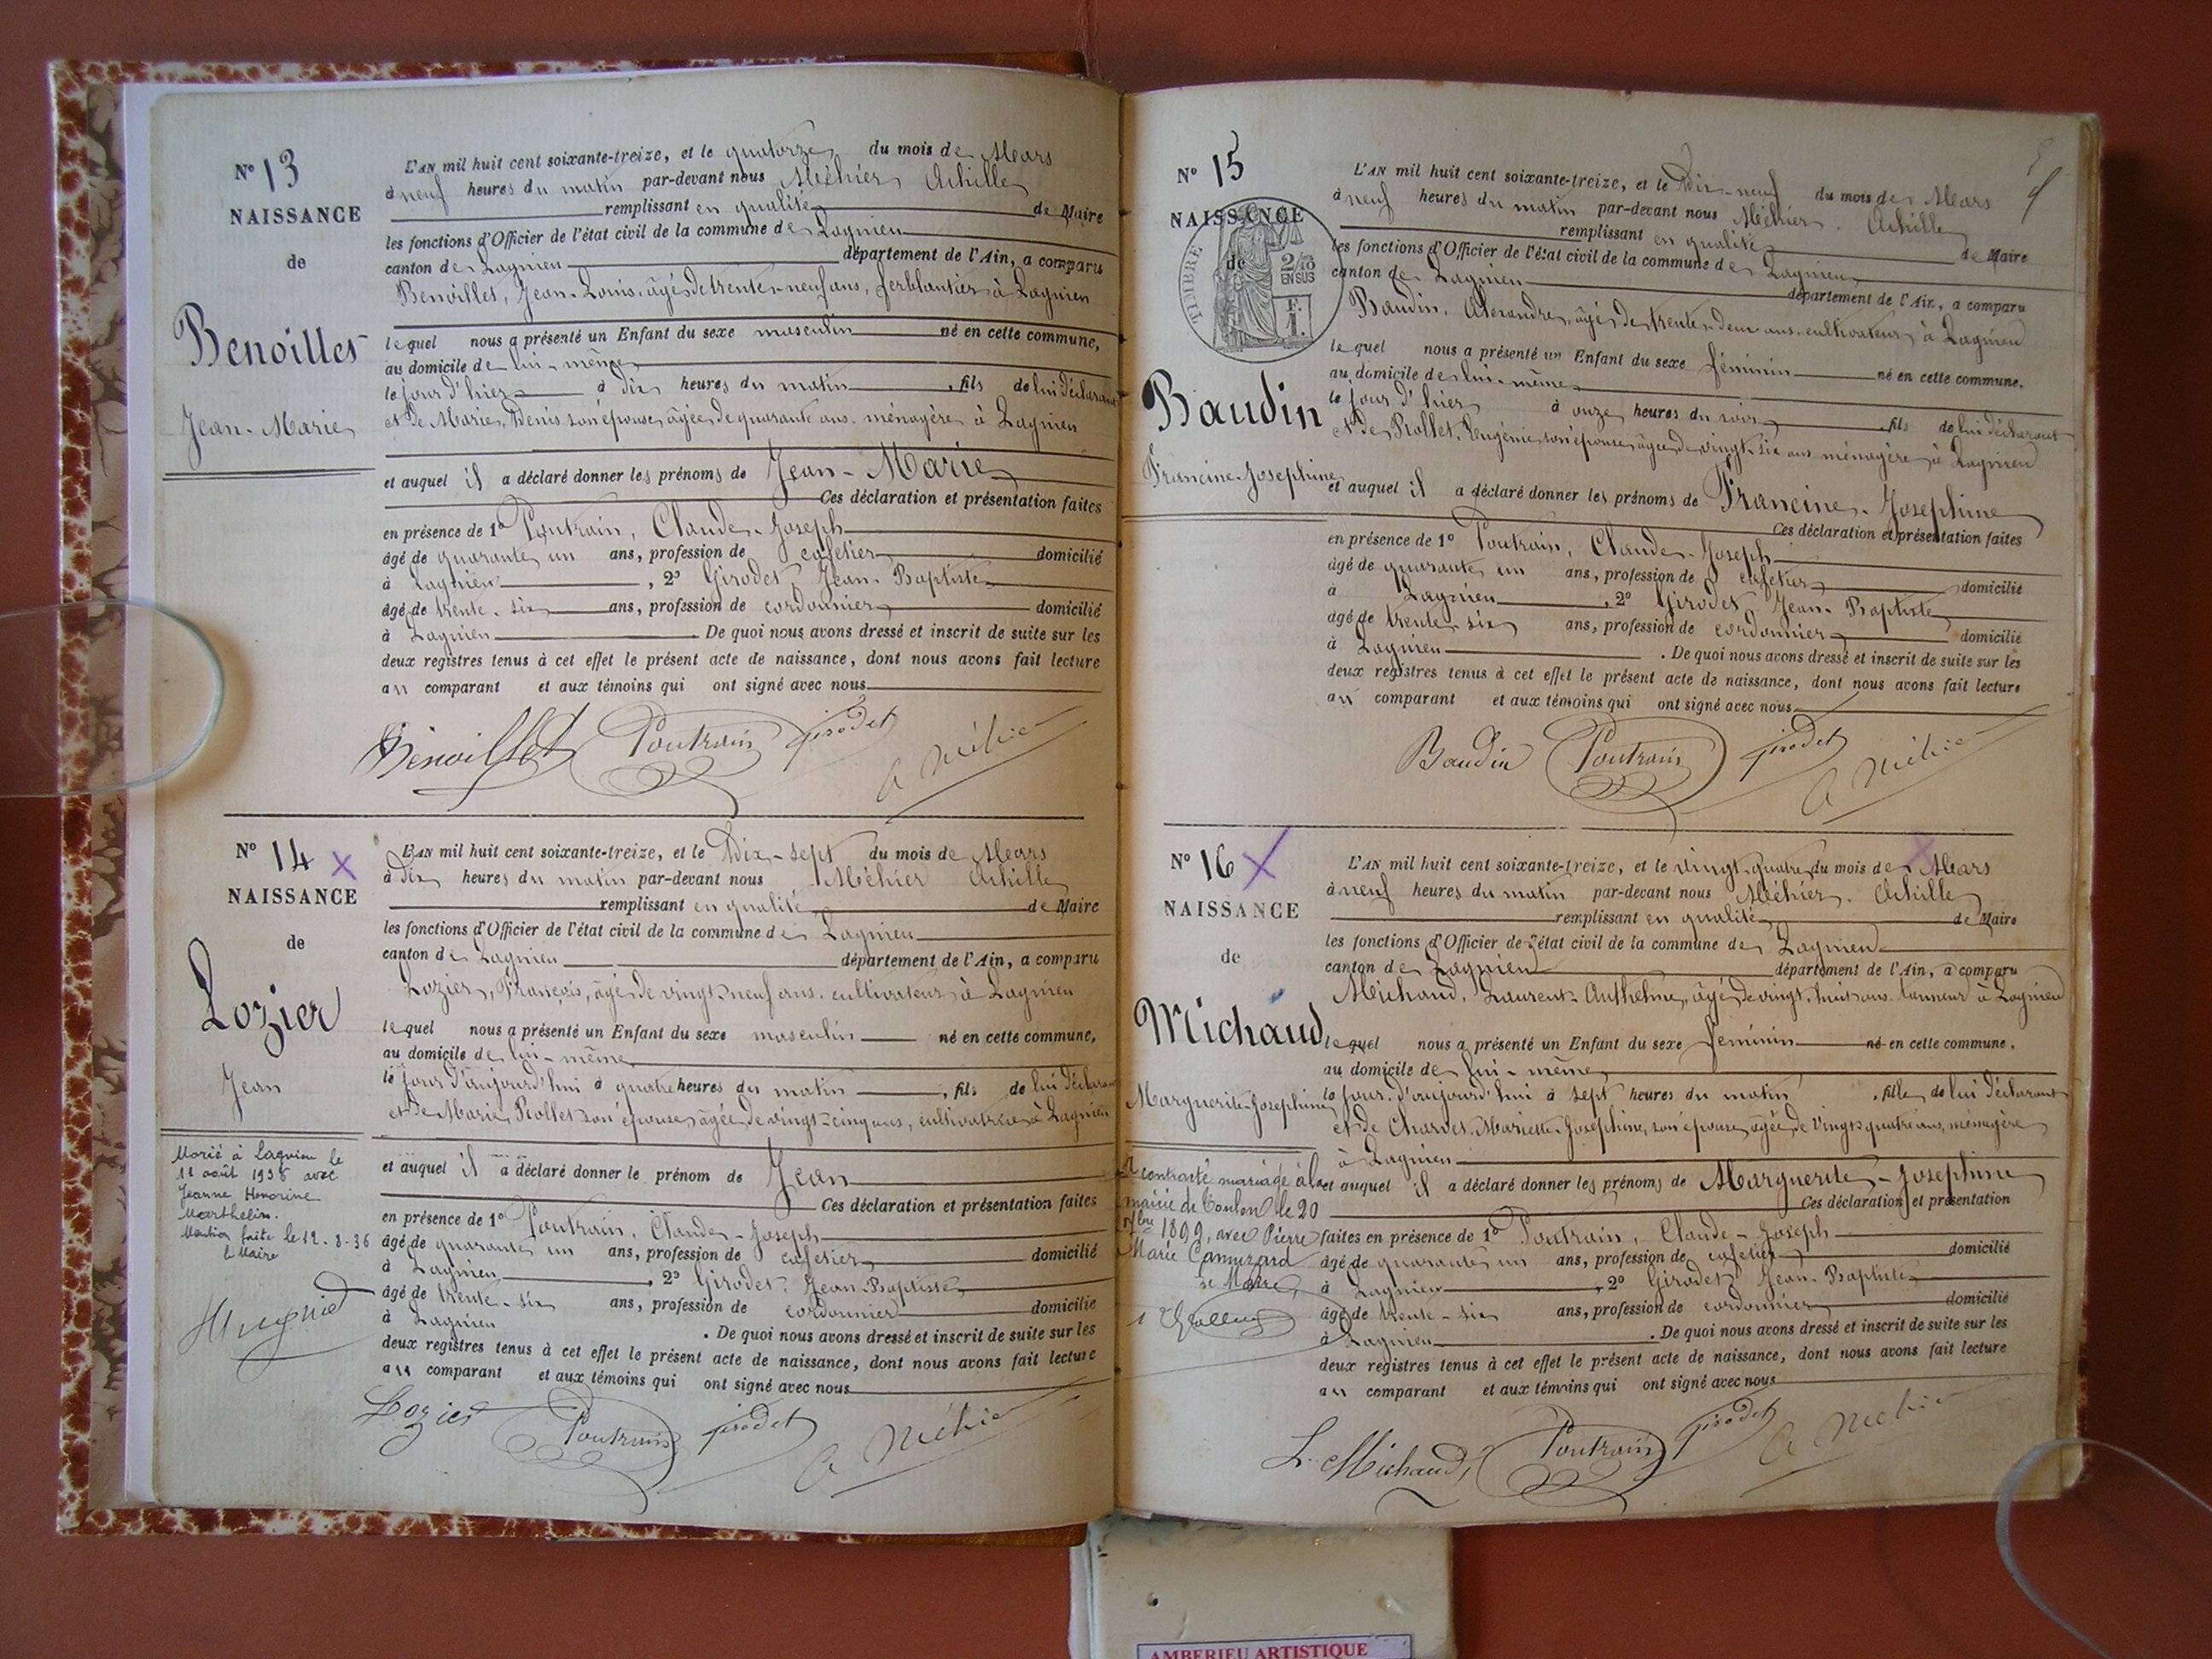 N° 13
NAISSANCE
de
Benoillet
Jean-Marie
L'AN mil huit cent soixante-treize, et le quatorze du mois de Mars
à neuf heures du matin par-devant nous Méhier Achille
remplissant en qualité de Maire
les fonctions d'Officier de l'état civil de la commune de Lagnieu
canton de Lagnieu département de l'Ain, a comparu
Benoillet, Jean-Louis, âgé de trente-neuf ans, ferblantier à Lagnieu
lequel nous a présenté un Enfant du sexe masculin né en cette commune,
au domicile de lui-même
le jour d'hier à dix heures du matin, fils de lui déclarant
et de Marie Denis son épouse, âgée de quarante ans, ménagère à Lagnieu
et auquel il a déclaré donner les prénoms de Jean-Marie
Ces déclaration et présentation faites
en présence de 1° Poutrain, Claude-Joseph
âgé de quarante un ans, profession de cafetier domicilié
à Lagnieu, 2° Girodet, Jean-Baptiste
âgé de trente-six ans, profession de cordonnier domicilié
à Lagnieu. De quoi nous avons dressé et inscrit de suite sur les
deux registres tenus à cet effet le présent acte de naissance, dont nous avons fait lecture
au comparant et aux témoins qui ont signé avec nous
Benoillet Poutrain girodet A Méhier
N° 14
NAISSANCE
de
Lozier
Jean
Marié à Lagnieu le
11 août 1936 avec
Jeanne Honorine
Marthelin.
Mention faite le 12-8-36
le Maire
L'AN mil huit cent soixante-treize, et le Dix-sept du mois de Mars
à Dix heures du matin par-devant nous Méhier Achille
remplissant en qualité de Maire
les fonctions d'Officier de l'état civil de la commune de Lagnieu
canton de Lagnieu département de l'Ain, a comparu
Lozier, François, âgé de vingt-neuf ans, cultivateur à Lagnieu
lequel nous a présenté un Enfant du sexe masculin né en cette commune,
au domicile de lui-même
le jour d'aujourd'hui à quatre heures du matin, fils de lui déclarant
et de Marie Rollet son épouse, âgée de vingt-cinq ans, cultivatrice à Lagnieu
et auquel il a déclaré donner le prénom de Jean
Ces déclaration et présentation faites
en présence de 1° Poutrain, Claude-Joseph
âgé de quarante un ans, profession de cafetier domicilié
à Lagnieu, 2° Girodet, Jean-Baptiste
âgé de trente-six ans, profession de cordonnier domicilié
à Lagnieu. De quoi nous avons dressé et inscrit de suite sur les
deux registres tenus à cet effet le présent acte de naissance, dont nous avons fait lecture
au comparant et aux témoins qui ont signé avec nous
Lozier Poutrain girodet A Méhier
N° 15
NAISSANCE
de
TIMBRE
2/10
EN SUS
F.
1.
Baudin
Francine-Josephine
L'AN mil huit cent soixante-treize, et le Dix-neuf du mois de Mars
à neuf heures du matin par-devant nous Méhier. Achille
remplissant en qualité de Maire
les fonctions d'Officier de l'état civil de la commune de Lagnieu
canton de Lagnieu département de l'Ain, a comparu
Baudin, Alexandre, âgé de trente-deux ans, cultivateur, à Lagnieu
lequel nous a présenté un Enfant du sexe féminin né en cette commune.
au domicile de lui-même
le jour d'hier à onze heures du soir, fils de lui déclarant
et de Rollet, Eugénie, son épouse, âgée de vingt-six ans ménagère, à Lagnieu
et auquel il a déclaré donner les prénoms de Francine-Josephine
Ces déclaration et présentation faites
en présence de 1° Poutrain, Claude-Joseph
âgé de quarante un ans, profession de cafetier domicilié
à Lagnieu, 2° Girodet Jean-Baptiste
âgé de trente-six ans, profession de cordonnier domicilié
à Lagnieu. De quoi nous avons dressé et inscrit de suite sur les
deux registres tenus à cet effet le présent acte de naissance, dont nous avons fait lecture
au comparant et aux témoins qui ont signé avec nous
Baudin Poutrain girodet A Méhier
N° 16
NAISSANCE
de
Michaud
Marguerite-Josephine
A contracté mariage à la
mairie de Toulon le 20
1899, avec Pierre
Marie
le Maire,
L'AN mil huit cent soixante-treize, et le vingt-quatre du mois de Mars
à neuf heures du matin par-devant nous Méhier. Achille
remplissant en qualité de Maire
les fonctions d'Officier de l'état civil de la commune de Lagnieu
canton de Lagnieu département de l'Ain, a comparu
Michaud, Laurent-Anthelme, âgé de vingt-huit ans, tanneur à Lagnieu
lequel nous a présenté un Enfant du sexe féminin né en cette commune,
au domicile de lui-même
le jour d'aujourd'hui à sept heures du matin, fille de lui déclarant
et de Charvet, Mariette-Josephine, son épouse, âgée de vingt-quatre ans, ménagère
à Lagnieu
et auquel il a déclaré donner les prénoms de Marguerite-Josephine
Ces déclaration et présentation
faites en présence de 1° Poutrain, Claude-Joseph
âgé de quarante un ans, profession de cafetier domicilié
à Lagnieu, 2° Girodet Jean-Baptiste
âgé de trente-six ans, profession de cordonnier domicilié
à Lagnieu. De quoi nous avons dressé et inscrit de suite sur les
deux registres tenus à cet effet le présent acte de naissance, dont nous avons fait lecture
au comparant et aux témoins qui ont signé avec nous
L. Michaud Poutrain girodet A Méhier
AMBERIEU ARTISTIQUE